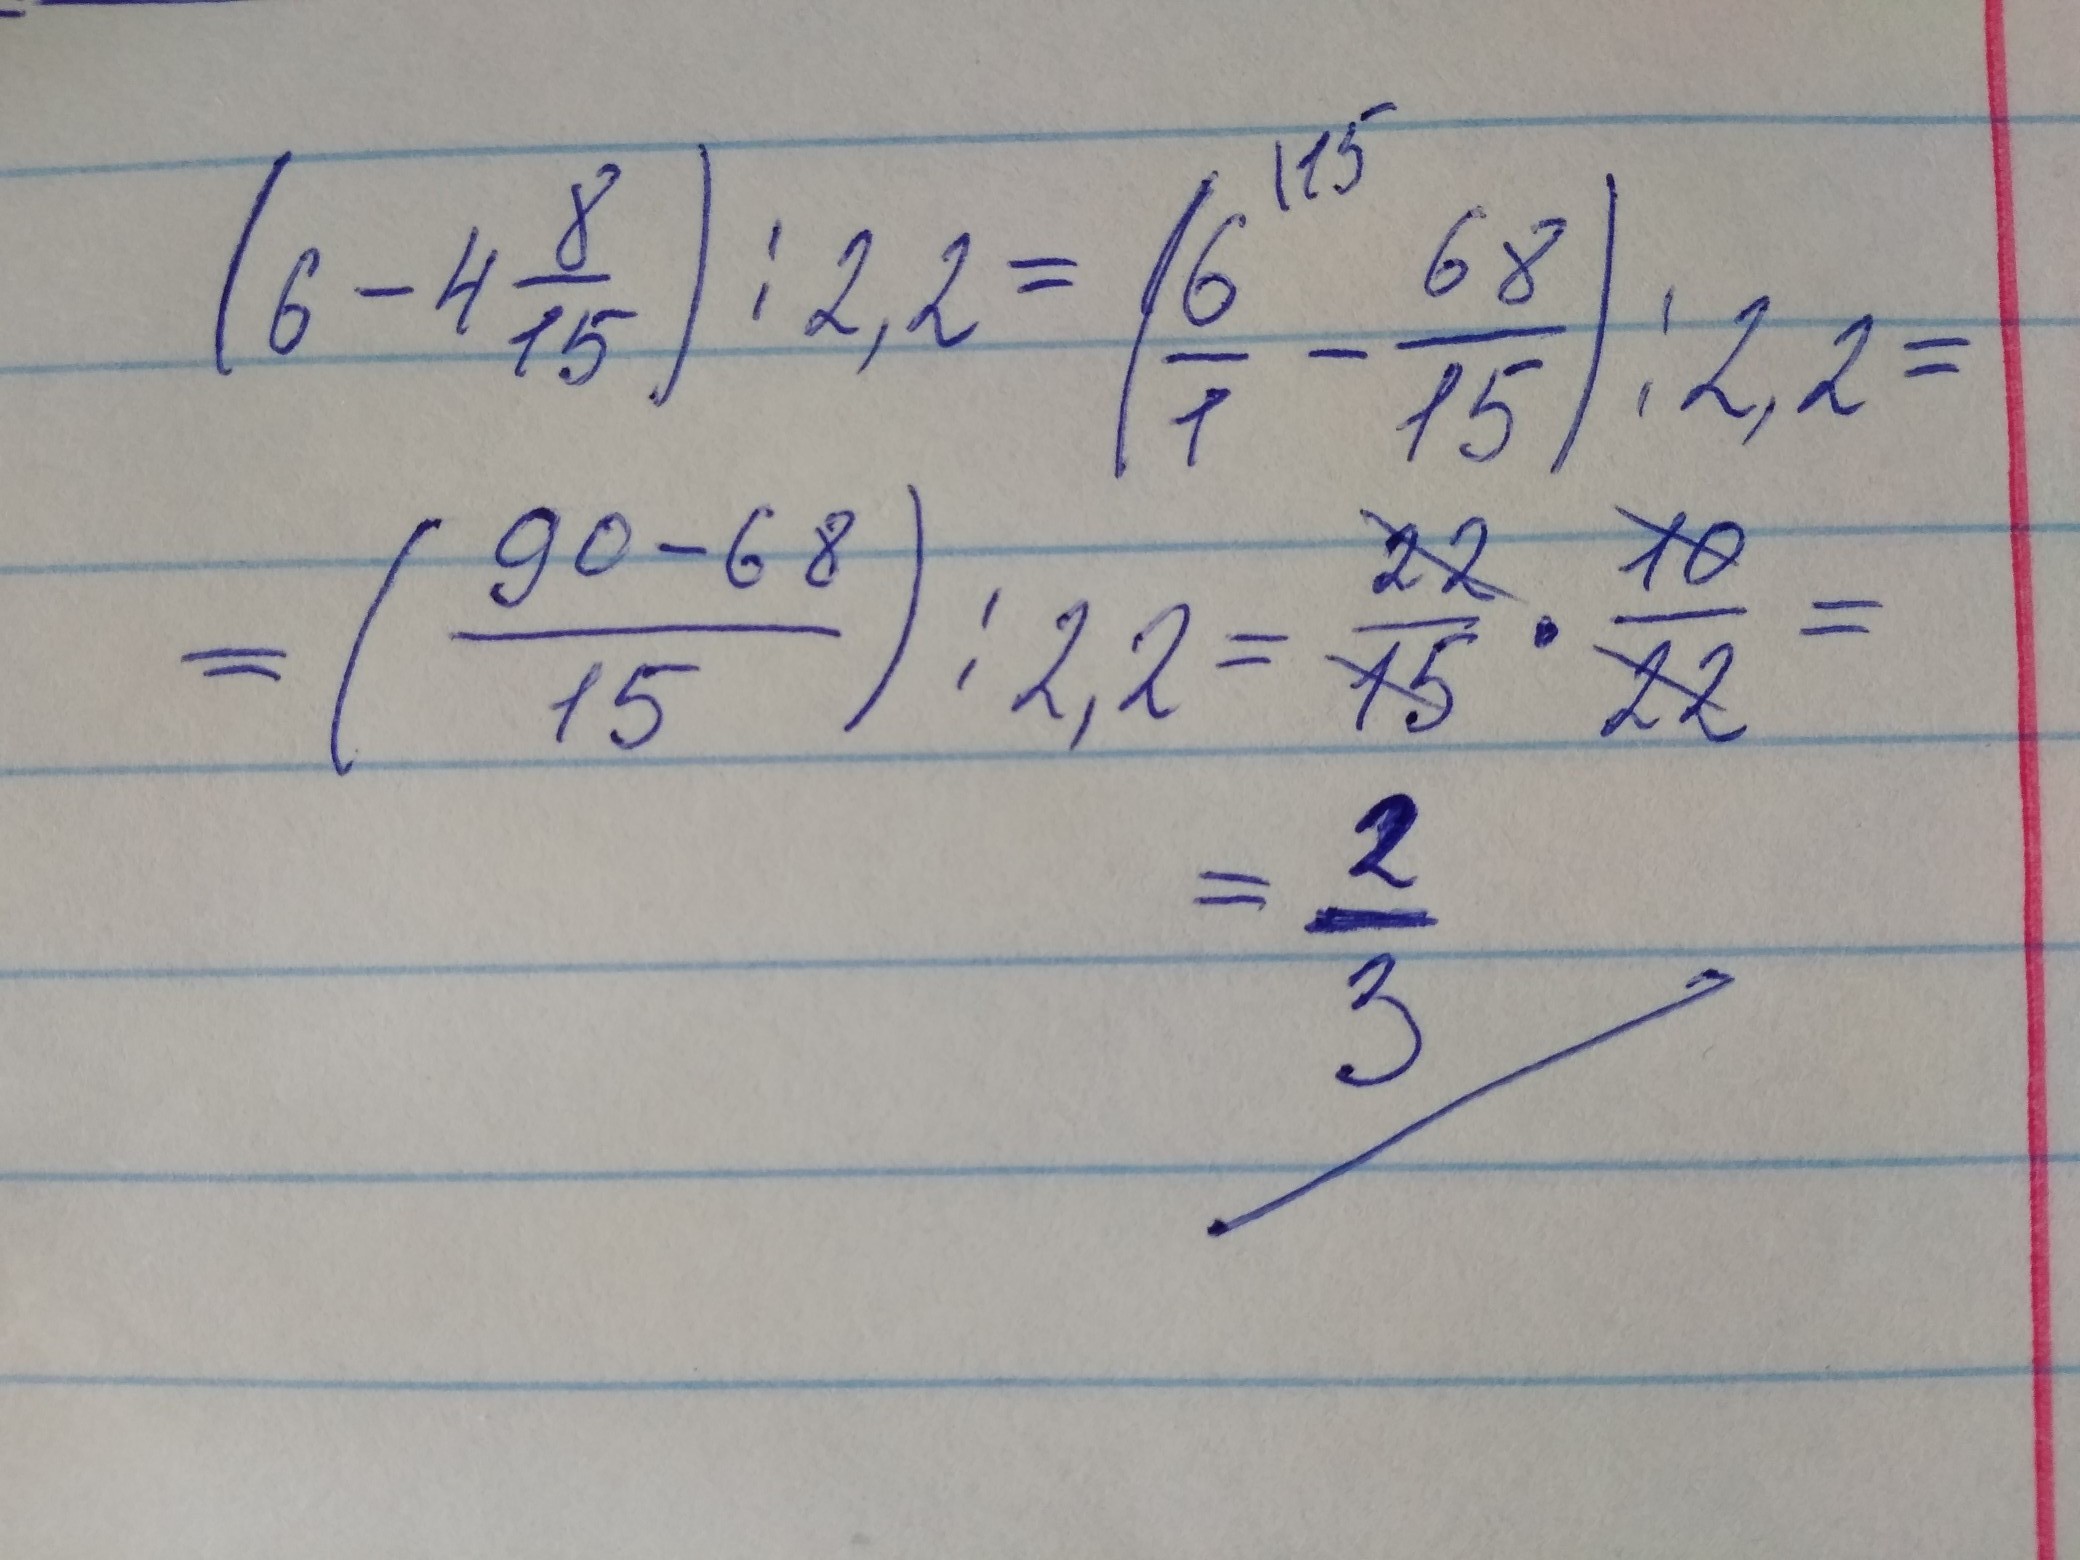 (6 - 4 8/15) : 2,2 = (6/1 |15 - 68/15) : 2,2 =
= (90 - 68 / 15) : 2,2 = 22/15 · 10/22 =
= 2/3